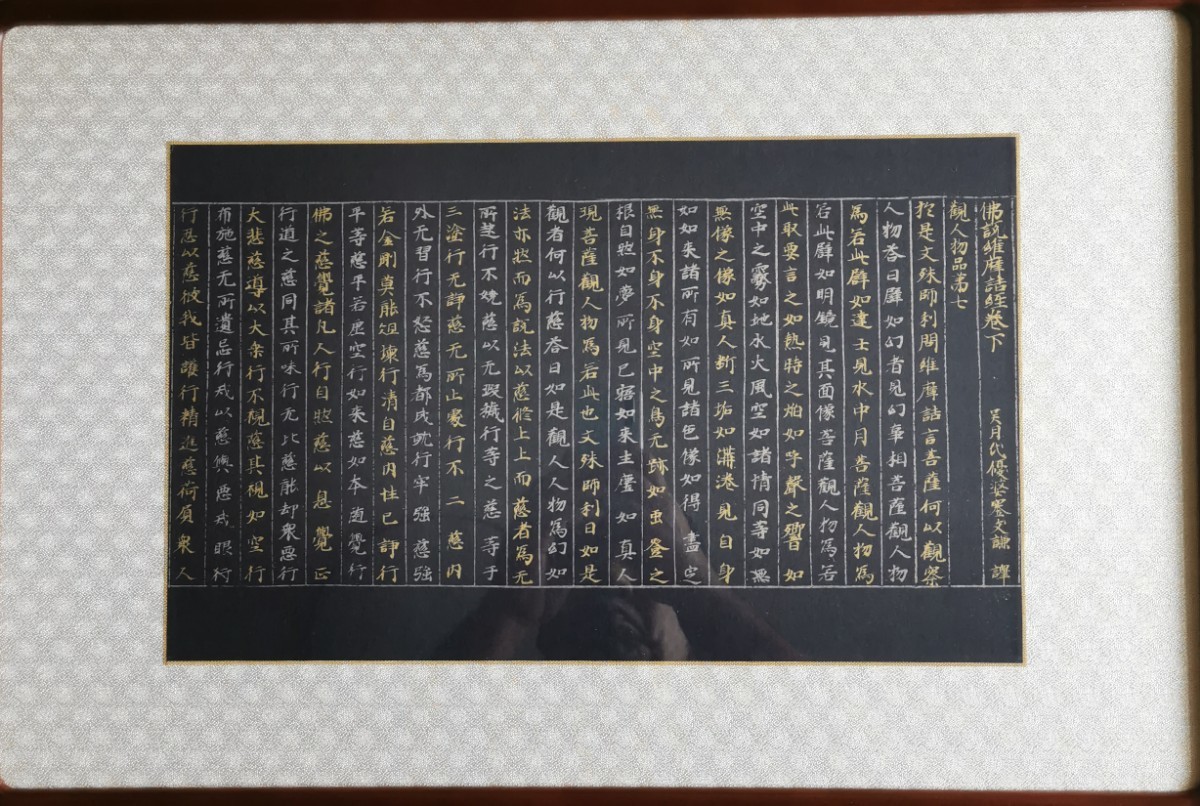 佛說維摩詰経卷下 吳月氏優婆塞支謙 譯
觀人物品苐七
於是文殊師利問維摩詰言菩薩何以觀察
人物荅曰譬如幻者見幻事相菩薩觀人物
為若此譬如達士見水中月菩薩觀人物為
若此譬如明鏡見其面像菩薩觀人物為若
此取要言之如熱時之焰如呼聲之響如
空中之霧如地水火風空如諸情同等如無
無像之像如真人斷三垢如溝港見自身
如如來諸所有如所見諸色像如得 盡定
無身不身不身空中之鳥无跡如虫登之
根自然如夢所見已寤如來生 如真人
現菩薩觀人物為若此也文殊師利曰如是
觀者何以行慈荅曰如是觀人人物為幻如
法亦然而為說法以慈修上上而慈者為无
所 行不嬈慈以无瑕穢行等之慈等于
三塗行无諍慈无所止處行不二慈內
外无習行不怒慈為都成就行牢强慈强
若金剛莫能沮壞行清自慈內性已諍行
平等慈平若虛空行如來慈如本 覺行
佛之慈覺諸凡人行自然慈以 息覺正
行道之慈同其所味行无比慈能却衆惡行
大悲慈導以大乘行不視慈其視如空行
布施慈无所遺忘行戒以慈與惡戒眼行
行忍以慈彼我皆護行精進慈荷負衆人